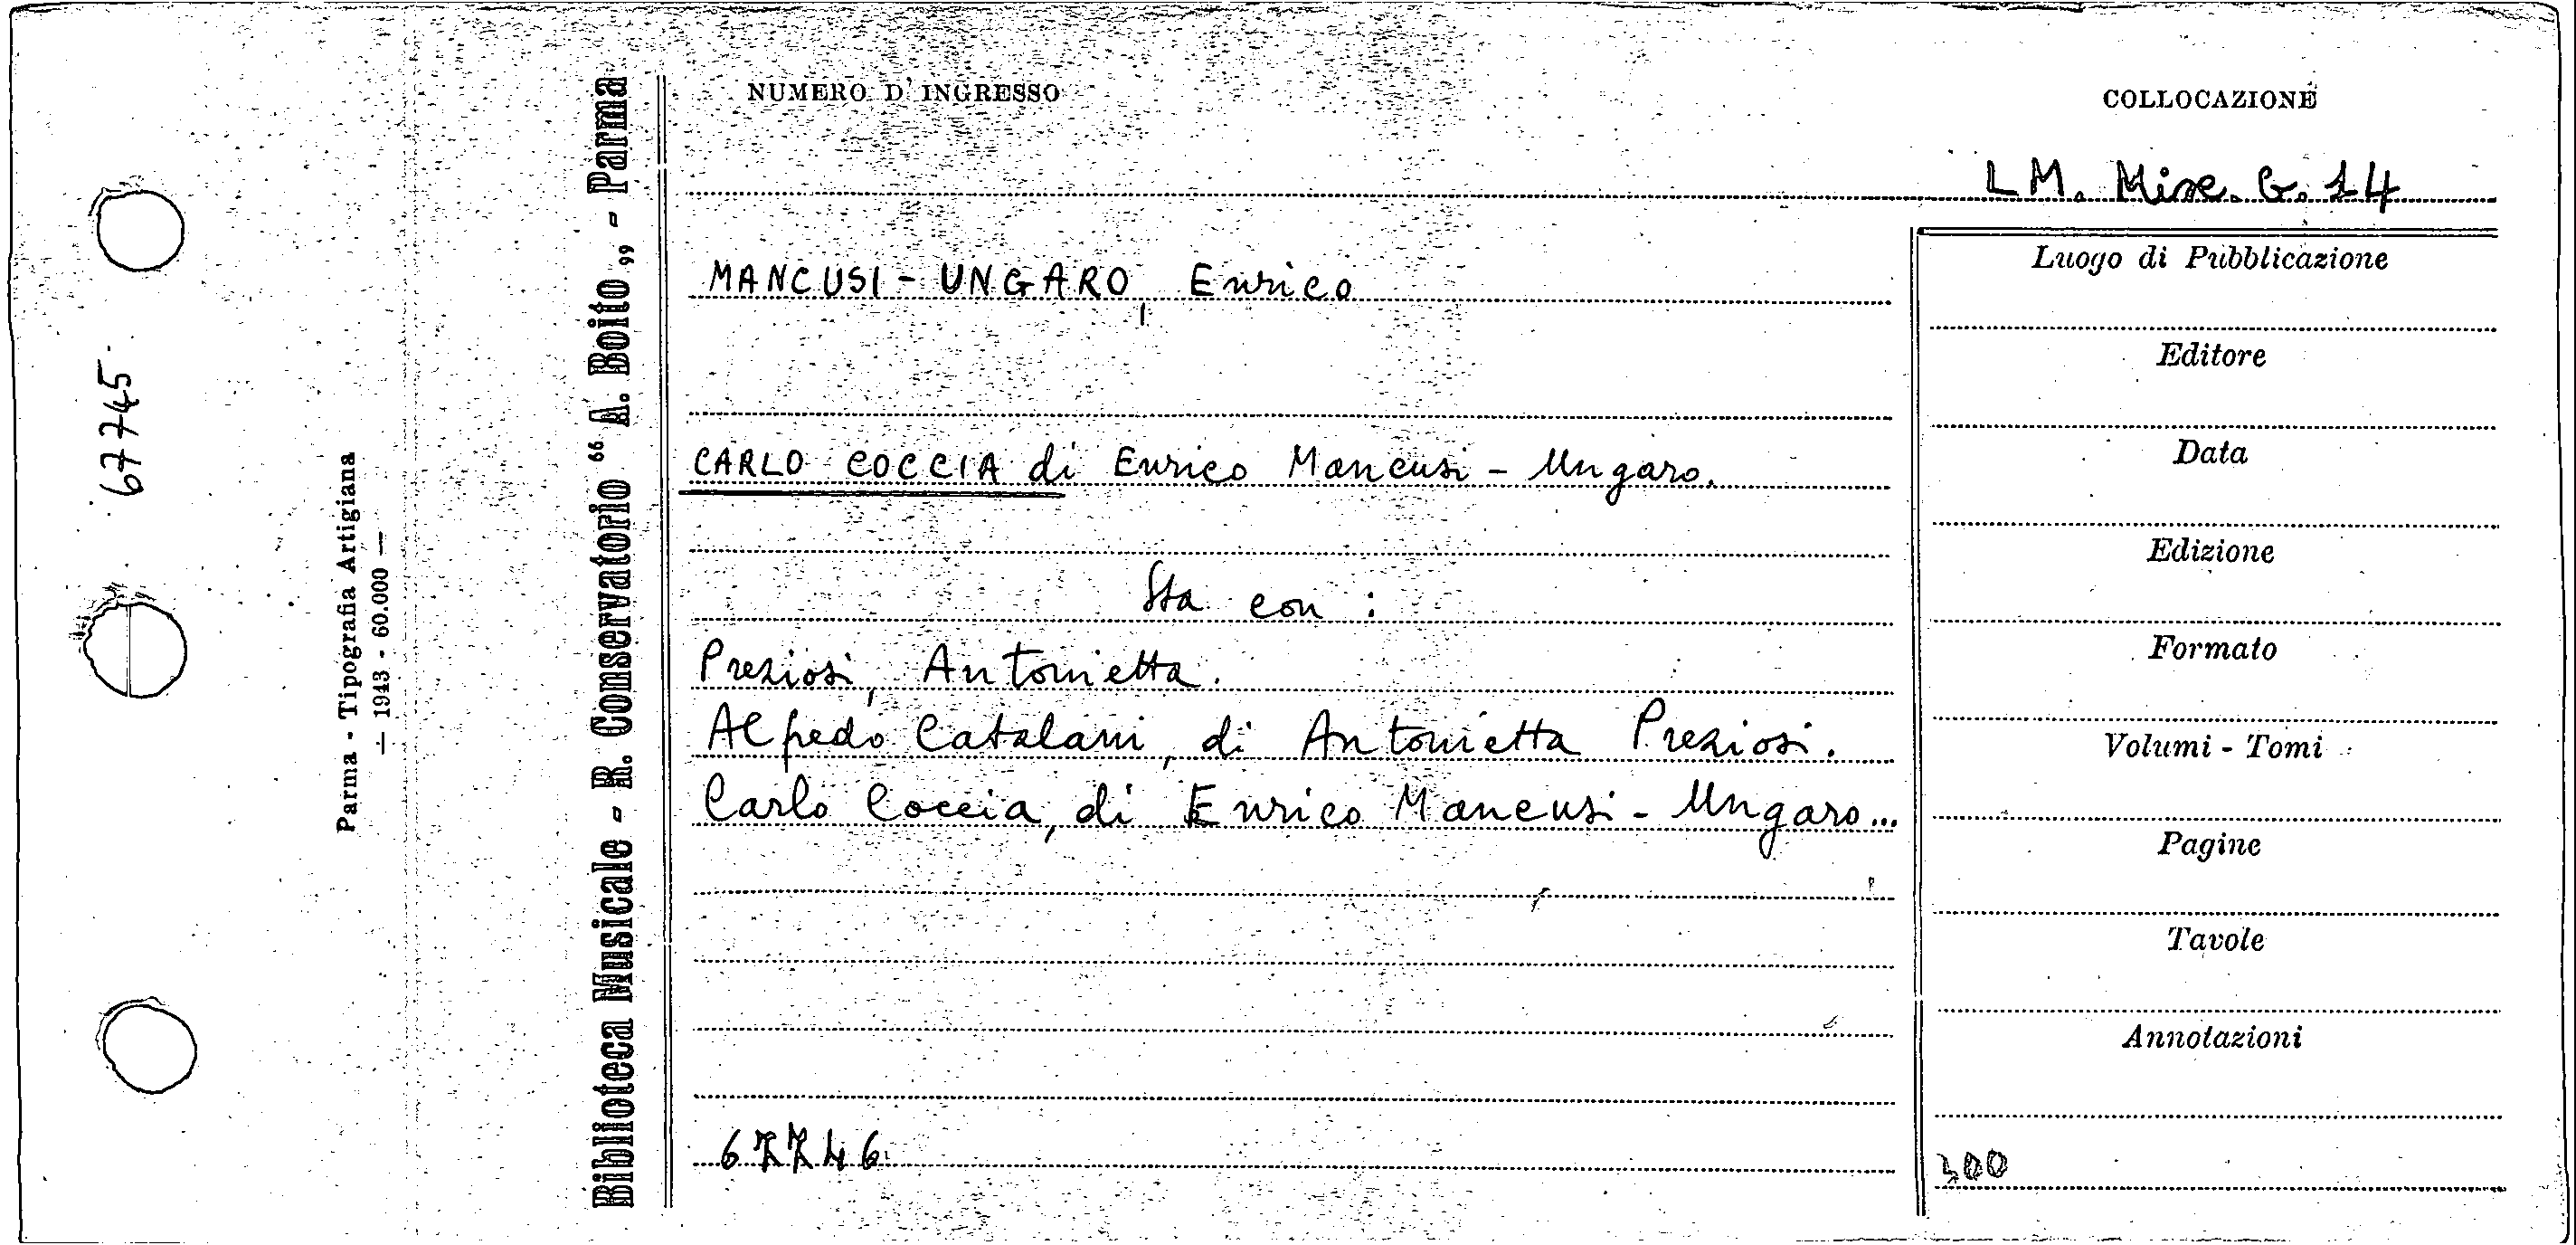 67745
Parma - Tipografia Artigiana
— 1943 - 60.000 —
Biblioteca Musicale - R. Conservatorio “A. Boito„ - Parma
NUMERO D'INGRESSO
COLLOCAZIONE
LM. Misc. G. 14
MANCUSI - UNGARO, Enrico
CARLO COCCIA di Enrico Mancusi - Ungaro.
Sta con :
Preziosi, Antonietta.
Alfredo Catalani, di Antonietta Preziosi.
Carlo Coccia, di Enrico Mancusi - Ungaro...
67746
Luogo di Pubblicazione
Editore
Data
Edizione
Formato
Volumi - Tomi
Pagine
Tavole
Annotazioni
300